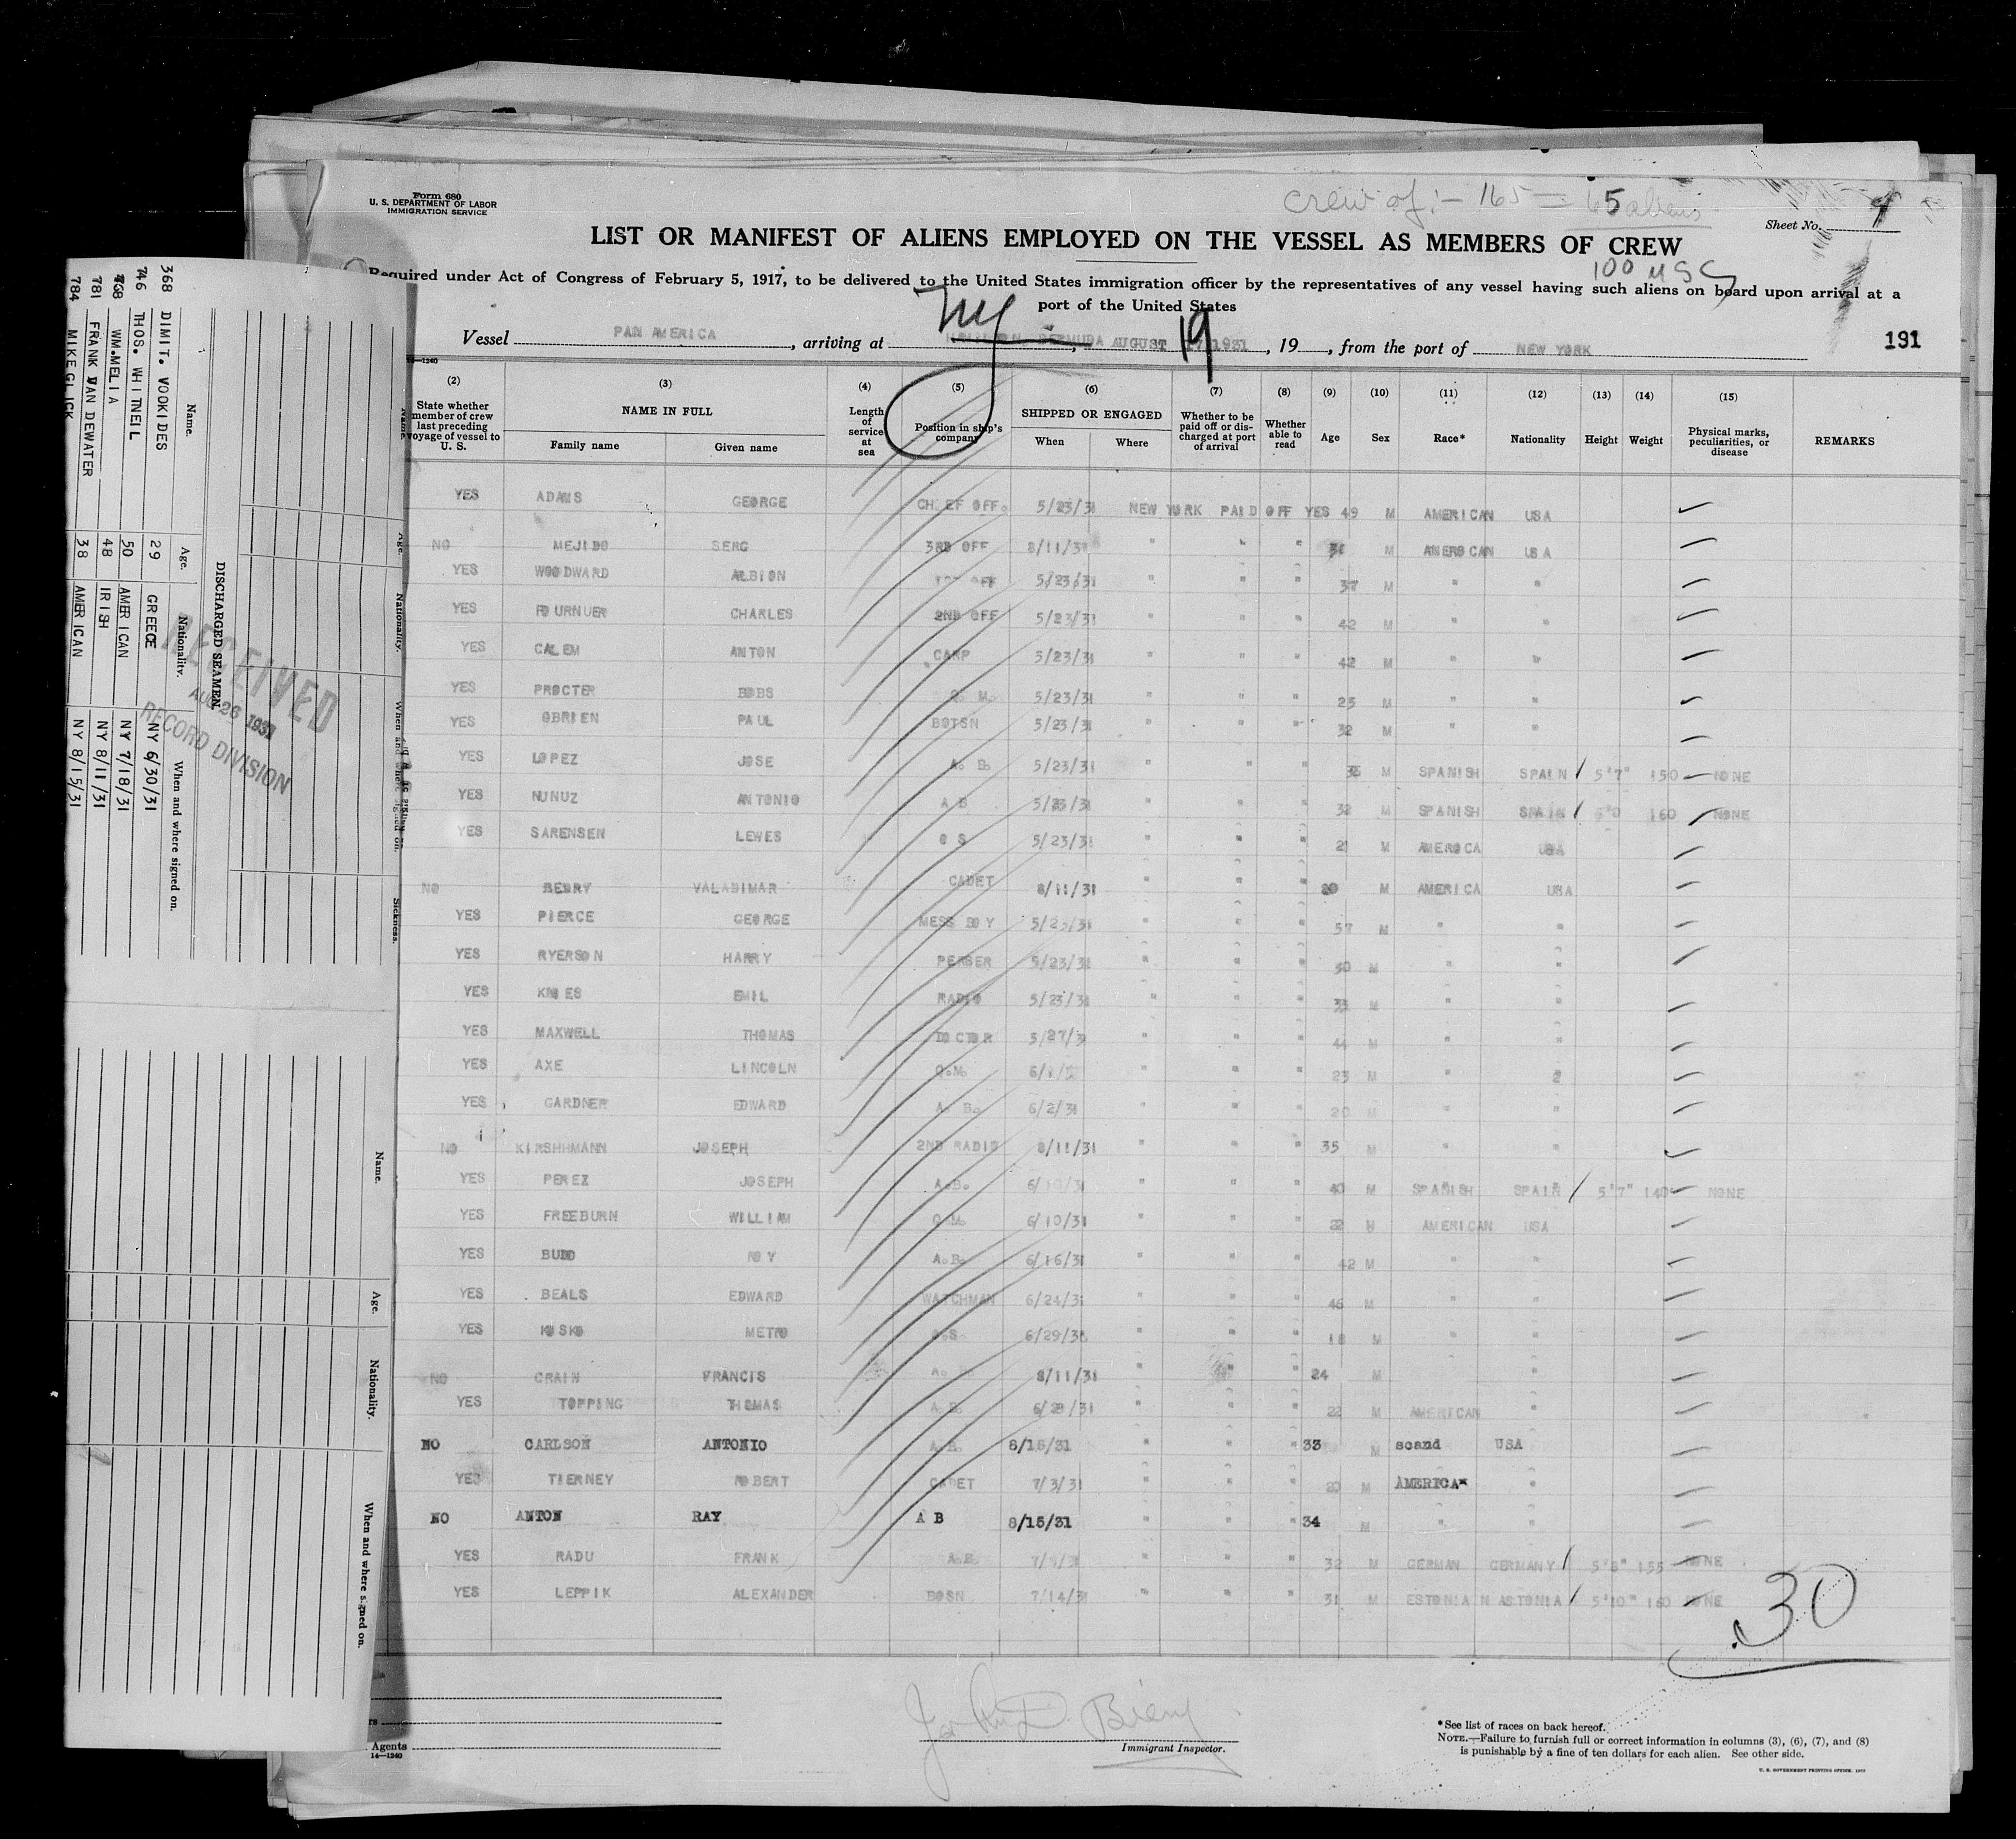 Form 680
U. S. DEPARTMENT OF LABOR
IMMIGRATION SERVICE
crew of :- 165 = 65 aliens
Sheet No.
LIST OR MANIFEST OF ALIENS EMPLOYED ON THE VESSEL AS MEMBERS OF CREW
100 USC
Required under Act of Congress of February 5, 1917, to be delivered to the United States immigration officer by the representatives of any vessel having such aliens on board upon arrival at a
port of the United States
Vessel PAN AMERICA, arriving at NY BERMUDA AUGUST 19 1931, 19, from the port of NEW YORK
191
14—1240
(2) (3) (4) (5) (6) (7) (8) (9) (10) (11) (12) (13) (14) (15)
State whether member of crew last preceding voyage of vessel to U. S.
NAME IN FULL
Family name Given name
Length of service at sea
Position in ship's company
SHIPPED OR ENGAGED
When Where
Whether to be paid off or discharged at port of arrival
Whether able to read
Age Sex Race* Nationality Height Weight
Physical marks, peculiarities, or disease
REMARKS
YES ADAMS GEORGE CHIEF OFF. 5/23/31 NEW YORK PAID OFF YES 49 M AMERICAN USA
NO MEJIDO SERG 3RD OFF 8/11/31 " " " 31 M AMEROCAN USA
YES WOODWARD ALBION 1ST OFF 5/23/31 " " " 37 M " "
YES FOURNUER CHARLES 2ND OFF 5/23/31 " " " 42 M " "
YES CALEM ANTON CARP 5/23/31 " " " 42 M " "
YES PROCTER BOBS Q. M. 5/23/31 " " " 25 M " "
YES OBRIEN PAUL BOTSN 5/23/31 " " " 32 M " "
YES LOPEZ JOSE A. B. 5/23/31 " " " 36 M SPANISH SPAIN 5'7" 150 NONE
YES NUNUZ ANTONIO A B 5/23/31 " " " 32 M SPANISH SPAIN 160 NONE
YES SARENSEN LEWES O S 5/23/31 " " " 21 M AMEROCA USA
NO BERRY VALADIMAR CADET 8/11/31 " " " 20 M AMERICA USA
YES PIERCE GEORGE MESS BOY 5/23/31 " " " 57 M " "
YES RYERSON HARRY PERSER 5/23/31 " " " 50 M " "
YES KNIES EMIL RADIO 5/23/31 " " " 33 M " "
YES MAXWELL THOMAS DOCTOR 5/27/31 " " " 44 M " "
YES AXE LINCOLN Q.M. 6/1/3 " " " 23 M " 2
YES GARDNER EDWARD A. B. 6/2/31 " " " 20 M " "
NO KIRSHHMANN JOSEPH 2ND RADIO 8/11/31 " " " 35 M " "
YES PEREZ JOSEPH A.B. 6/10/31 " " " 40 M SPANISH SPAIN 5'7" 140 NONE
YES FREEBURN WILLIAM Q.M. 6/10/31 " " " 22 M AMERICAN USA
YES BUDD ROY A.B. 6/16/31 " " " 42 M " "
YES BEALS EDWARD WATCHMAN 6/24/31 " " " 46 M " "
YES KOSKO METRO O.S. 6/29/31 " " " 18 M " "
NO CRAIN FRANCIS A. 8/11/31 " " " 24 M "
YES TOPPING THOMAS A.B. 6/28/31 " " " 22 M AMERICAN "
NO CARLSON ANTONIO A.B. 8/15/31 " " " 33 M scand USA
YES TIERNEY ROBERT CADET 7/3/31 " " " 20 M AMERICA* "
NO ANTON RAY A B 8/15/31 " " " 34 M " "
YES RADU FRANK A.B. 7/9/31 " " " 32 M GERMAN GERMANY 5'8" 155 NONE
YES LEPPIK ALEXANDER BOSN 7/14/31 " " " 31 M ESTONIAN ASTONIA 5'10" 160 NONE
30
Agents
14—1240
Immigrant Inspector.
*See list of races on back hereof.
NOTE.—Failure to furnish full or correct information in columns (3), (6), (7), and (8)
is punishable by a fine of ten dollars for each alien. See other side.
U. S. GOVERNMENT PRINTING OFFICE
DISCHARGED SEAMEN
Name. Age. Nationality. When and where signed on.
368 DIMIT. VOOKIDES 29 GREECE NY 6/30/31
746 THOS. WHITNEIL 50 AMERICAN NY 7/18/31
768 WM. MELIA 48 IRISH NY 8/11/31
781 FRANK VAN DEWATER 38 AMERICAN NY 8/15/31
784 MIKE GLICK
RECEIVED
AUG 26 1931
RECORD DIVISION
Name. Age. Nationality. When and where signed on. Sickness.
Name. Age. Nationality. When and where signed on.